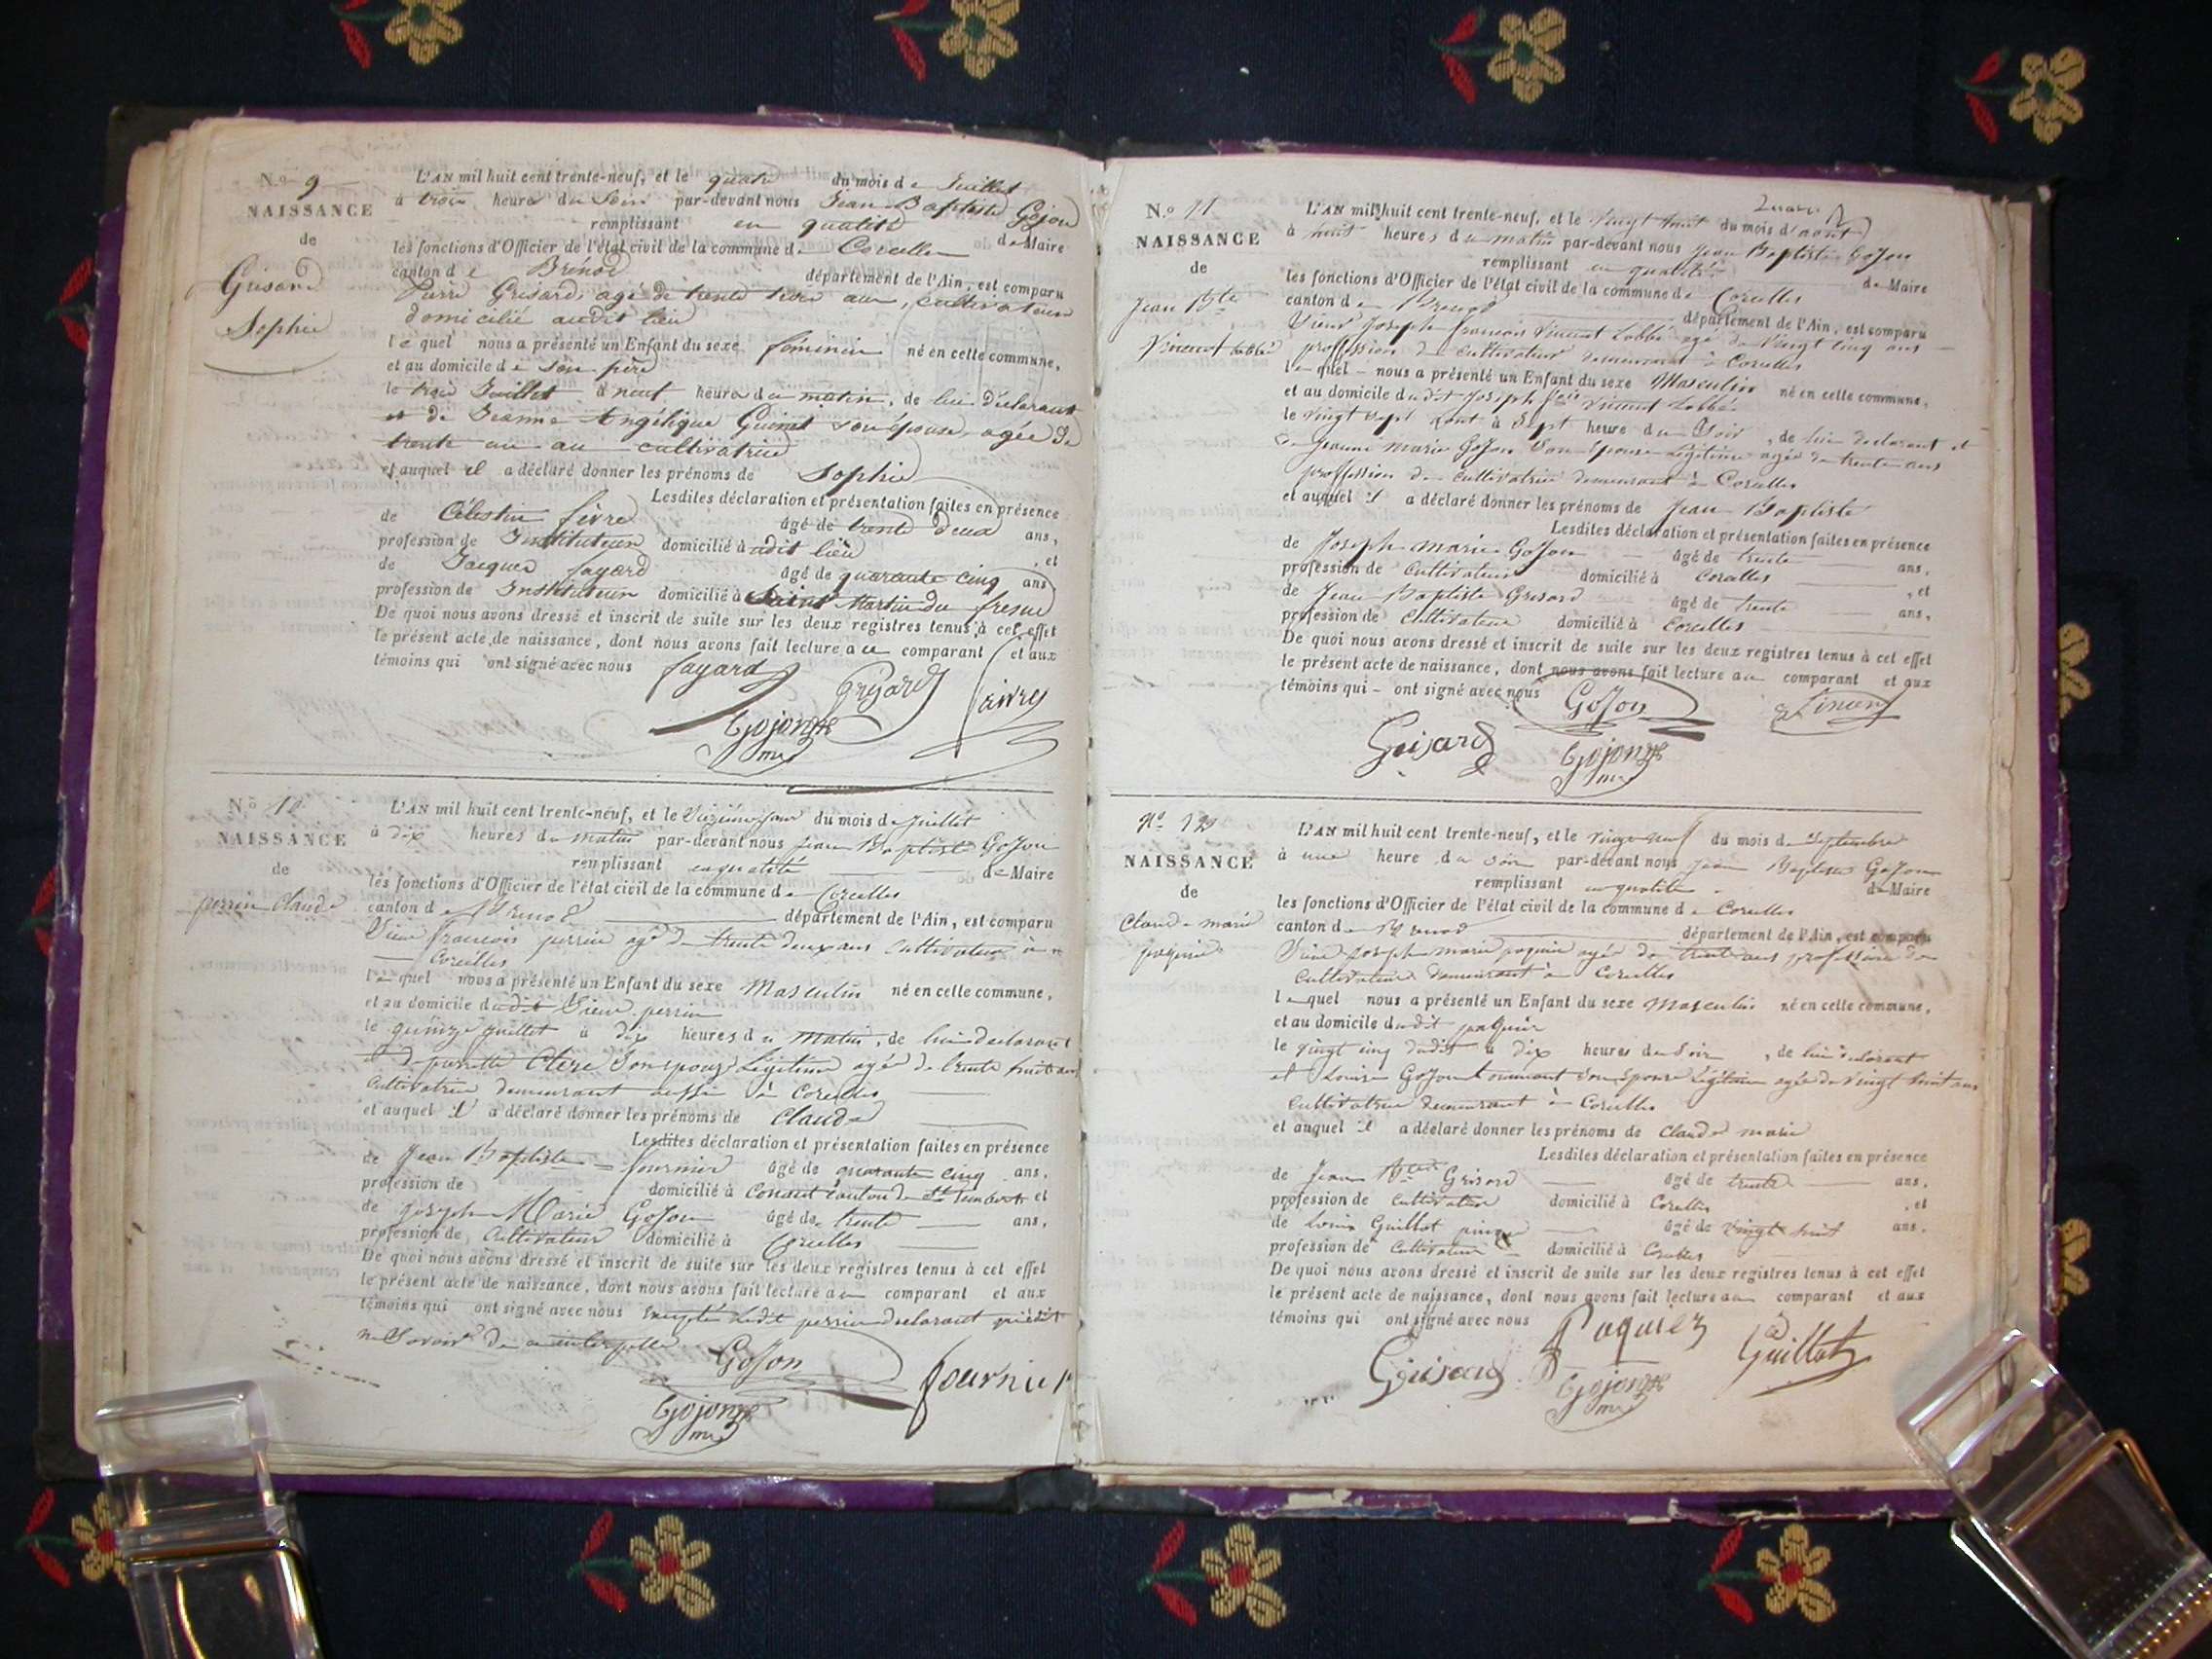 No 9
NAISSANCE
de
Grisard
Sophie
L'AN mil huit cent trente-neuf, et le quatre du mois de Juillet
à trois heures du Soir par-devant nous Jean Baptiste Gojon
remplissant en qualité de Maire
les fonctions d'Officier de l'état civil de la commune de Corcelles
canton de Brénod département de l'Ain, est comparu
Pierre Grisard, agé de trente trois ans, cultivateur
domicilié audit lieu
lequel nous a présenté un Enfant du sexe féminin né en cette commune,
et au domicile de son père
le trois Juillet à neuf heures du matin, de lui déclarant
et de Jeanne Angélique Guinet son épouse, agée de
trente un an cultivatrice
et auquel il a déclaré donner les prénoms de Sophie
Lesdites déclaration et présentation faites en présence
de Célestin fèvre âgé de trente deux ans,
profession de Instituteur domicilié à udit lieu , et
de Jacques fayard âgé de quarante cinq ans
profession de Instituteur domicilié à Saint Martin du fresne
De quoi nous avons dressé et inscrit de suite sur les deux registres tenus à cet effet
le présent acte de naissance, dont nous avons fait lecture au comparant et aux
témoins qui ont signé avec nous
fayard Grisard fèvre
Gojon
No 10
NAISSANCE
de
perrin Claude
L'AN mil huit cent trente-neuf, et le du mois de Juillet
à dix heures du matin par-devant nous Jean Baptiste Gojon
remplissant en qualité de Maire
les fonctions d'Officier de l'état civil de la commune de Corcelles
canton de Brenod département de l'Ain, est comparu
Sieur francois perrin agé de trente deux ans cultivateur à
Corcelles
lequel nous a présenté un Enfant du sexe Masculin né en cette commune,
et au domicile dudit Sieur perrin
le quinze juillet à dix heures du matin, de lui déclarant
et de Clerc Son epouse Légitime agée de trente huit ans
Cultivatrice demeurant aussi à Corcelles
et auquel il a déclaré donner les prénoms de Claude
Lesdites déclaration et présentation faites en présence
de Jean Baptiste fournier âgé de quarante cinq ans,
profession de domicilié à canton de et
de joseph Marie Gojon âgé de trente ans,
profession de Cultivateur domicilié à Corcelles
De quoi nous avons dressé et inscrit de suite sur les deux registres tenus à cet effet
le présent acte de naissance, dont nous avons fait lecture au comparant et aux
témoins qui ont signé avec nous Excepté Ledit perrin declarant
ne Savoir de ce interpellé
Gojon fournier
Gojon
No 11
NAISSANCE
de
Jean Bte
Vincent Lobbé
L'AN mil huit cent trente-neuf, et le Vingt huit du mois d'aout
à heures du matin par-devant nous Jean Baptiste Gojon
remplissant en qualité de Maire
les fonctions d'Officier de l'état civil de la commune de Corcelles
canton de Brenod département de l'Ain, est comparu
Sieur Joseph francois Vincent Lobbé agé de Vingt cinq ans
proffession de Cultivateur demeurant à Corcelles
lequel nous a présenté un Enfant du sexe Masculin né en cette commune,
et au domicile dudit Joseph fois Vincent Lobbé
le vingt sept aout à Sept heures du Soir, de lui declarant et
de Jeanne marie Gojon Son Epouse Légitime agée de trente ans
proffession de cultivatrice demeurant à Corcelles
et auquel il a déclaré donner les prénoms de Jean Baptiste
Lesdites déclaration et présentation faites en présence
de Joseph marie Gojon âgé de trente ans,
profession de Cultivateur domicilié à Corcelles , et
de Jean Baptiste Grisard âgé de trente ans,
profession de Cultivateur domicilié à Corcelles
De quoi nous avons dressé et inscrit de suite sur les deux registres tenus à cet effet
le présent acte de naissance, dont nous avons fait lecture au comparant et aux
témoins qui ont signé avec nous
Gojon Vincent
Grisard Gojon
No 12
NAISSANCE
de
Claude marie
paquier
L'AN mil huit cent trente-neuf, et le du mois de Septembre
à une heure du soir par-devant nous Jean Baptiste Gojon
remplissant en qualité de Maire
les fonctions d'Officier de l'état civil de la commune de Corcelles
canton de Brenod département de l'Ain, est comparu
Sieur joseph marie paquier agé de trente ans profession de
Cultivateur demeurant à Corcelles
lequel nous a présenté un Enfant du sexe Masculin né en cette commune,
et au domicile dudit paquier
le vingt cinq dudit à dix heures du Soir , de lui déclarant
et Louise Gojon Son Epouse Légitime agée de Vingt huit ans
Cultivatrice demeurant à Corcelles
et auquel il a déclaré donner les prénoms de Claude marie
Lesdites déclaration et présentation faites en présence
de Jean Bte Grisard âgé de trente ans,
profession de Cultivateur domicilié à Corcelles , et
de Louis Guillot âgé de vingt huit ans,
profession de Cultivateur domicilié à Corcelles
De quoi nous avons dressé et inscrit de suite sur les deux registres tenus à cet effet
le présent acte de naissance, dont nous avons fait lecture au comparant et aux
témoins qui ont signé avec nous
Paquier Guillot
Grisard Gojon